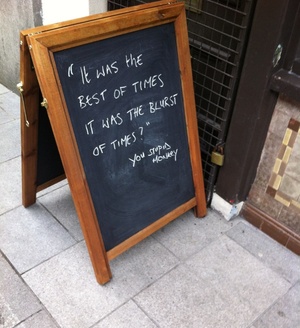 "It was the
BEST OF TIMES
IT WAS THE BLURST
OF TIMES?"
YOU STUPID
MONKEY